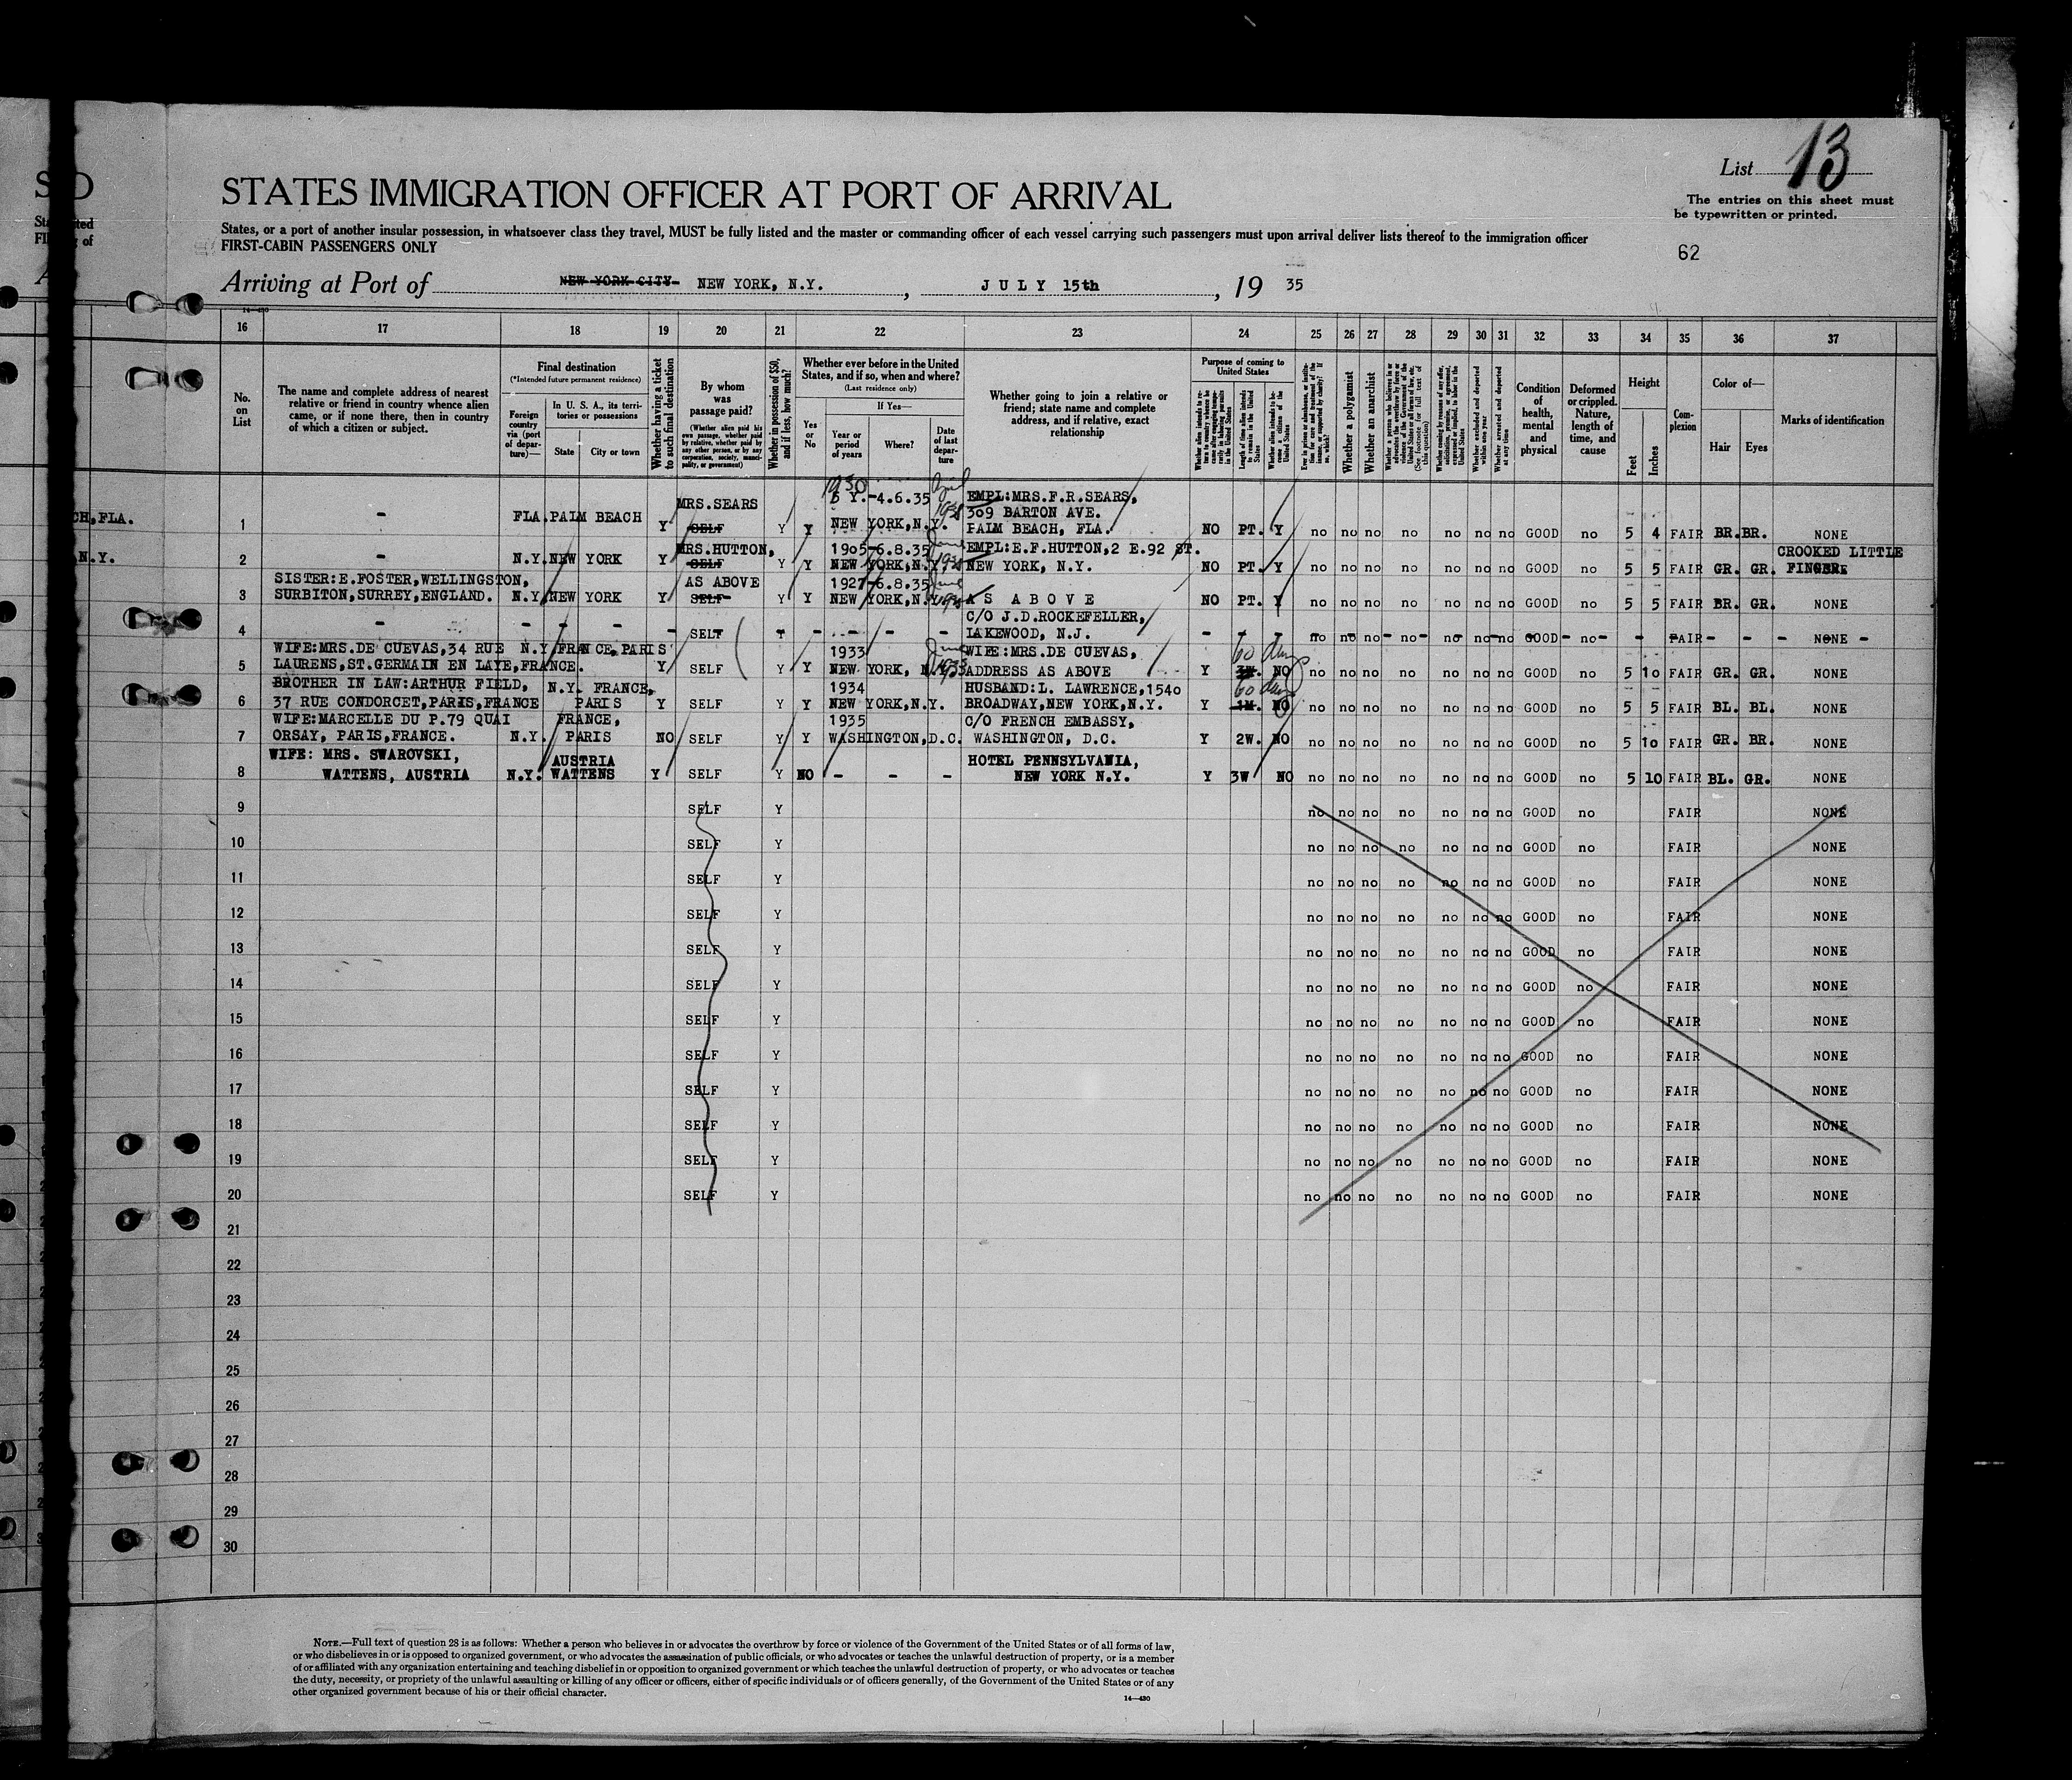 List 13
STATES IMMIGRATION OFFICER AT PORT OF ARRIVAL
The entries on this sheet must
be typewritten or printed.
States, or a port of another insular possession, in whatsoever class they travel, MUST be fully listed and the master or commanding officer of each vessel carrying such passengers must upon arrival deliver lists thereof to the immigration officer
FIRST-CABIN PASSENGERS ONLY
62
Arriving at Port of NEW YORK CITY- NEW YORK, N.Y. , JULY 15th , 19 35
16 17 18 19 20 21 22 23 24 25 26 27 28 29 30 31 32 33 34 35 36 37
No. on List
The name and complete address of nearest
relative or friend in country whence alien
came, or if none there, then in country
of which a citizen or subject.
Final destination
(*Intended future permanent residence)
Foreign country via (port of departure)—
In U. S. A., its territories or possessions
State City or town
Whether having a ticket to such final destination
By whom was passage paid?
(Whether alien paid his own passage, whether paid by relative, whether paid by any other person, or by any corporation, society, municipality, or government)
Whether in possession of $50, and if less, how much?
Whether ever before in the United
States, and if so, when and where?
(Last residence only)
Yes or No
If Yes—
Year or period of years
Where?
Date of last departure
Whether going to join a relative or
friend; state name and complete
address, and if relative, exact
relationship
Purpose of coming to United States
Whether a polygamist
Whether an anarchist
Condition of health, mental and physical
Deformed or crippled. Nature, length of time, and cause
Height
Feet Inches
Complexion
Color of—
Hair Eyes
Marks of identification
CH, FLA.
1 - FLA. PALM BEACH Y MRS.SEARS SELF Y Y 1930 5 Y.-4.6.35 NEW YORK,N.Y. EMPL:MRS.F.R.SEARS, 309 BARTON AVE. PALM BEACH, FLA. NO PT. Y no no no no no no no GOOD no 5 4 FAIR BR. BR. NONE
N.Y.
2 - N.Y. NEW YORK Y MRS.HUTTON, SELF Y Y 1905-6.8.35 NEW YORK,N.Y. EMPL:E.F.HUTTON,2 E.92 ST. NEW YORK, N.Y. NO PT. Y no no no no no no no GOOD no 5 5 FAIR GR. GR. CROOKED LITTLE FINGER.
3 SISTER:E.FOSTER,WELLINGSTON, SURBITON,SURREY,ENGLAND. N.Y. NEW YORK Y AS ABOVE SELF Y Y 1927-6.8.35 NEW YORK,N.Y. AS ABOVE NO PT. Y no no no no no no no GOOD no 5 5 FAIR BR. GR. NONE
4 - - - - - SELF - - - - - C/O J.D.ROCKEFELLER, LAKEWOOD, N.J. - - - no no no no no no no GOOD no - - FAIR - - NONE
5 WIFE:MRS.DE CUEVAS,34 RUE LAURENS,ST.GERMAIN EN LAYE,FRANCE. N.Y. FRANCE,PARIS Y SELF Y Y 1933 NEW YORK, N.Y. June 1933 WIFE:MRS.DE CUEVAS, ADDRESS AS ABOVE Y 60 days NO no no no no no no no GOOD no 5 10 FAIR GR. GR. NONE
6 BROTHER IN LAW:ARTHUR FIELD, 37 RUE CONDORCET,PARIS,FRANCE N.Y. FRANCE, PARIS Y SELF Y Y 1934 NEW YORK,N.Y. HUSBAND:L. LAWRENCE,1540 BROADWAY,NEW YORK,N.Y. Y 1M. 60 days NO no no no no no no no GOOD no 5 5 FAIR BL. BL. NONE
7 WIFE:MARCELLE DU P.79 QUAI ORSAY, PARIS,FRANCE. N.Y. FRANCE, PARIS NO SELF Y Y 1935 WASHINGTON,D.C. C/O FRENCH EMBASSY, WASHINGTON, D.C. Y 2W. NO no no no no no no no GOOD no 5 10 FAIR GR. BR. NONE
8 WIFE: MRS. SWAROVSKI, WATTENS, AUSTRIA N.Y. AUSTRIA WATTENS Y SELF Y NO - - - HOTEL PENNSYLVANIA, NEW YORK N.Y. Y 3W NO no no no no no no no GOOD no 5 10 FAIR BL. GR. NONE
9 SELF Y no no no no no no no GOOD no FAIR NONE
10 SELF Y no no no no no no no GOOD no FAIR NONE
11 SELF Y no no no no no no no GOOD no FAIR NONE
12 SELF Y no no no no no no no GOOD no FAIR NONE
13 SELF Y no no no no no no no GOOD no FAIR NONE
14 SELF Y no no no no no no no GOOD no FAIR NONE
15 SELF Y no no no no no no no GOOD no FAIR NONE
16 SELF Y no no no no no no no GOOD no FAIR NONE
17 SELF Y no no no no no no no GOOD no FAIR NONE
18 SELF Y no no no no no no no GOOD no FAIR NONE
19 SELF Y no no no no no no no GOOD no FAIR NONE
20 SELF Y no no no no no no no GOOD no FAIR NONE
21
22
23
24
25
26
27
28
29
30
NOTE.—Full text of question 28 is as follows: Whether a person who believes in or advocates the overthrow by force or violence of the Government of the United States or of all forms of law,
or who disbelieves in or is opposed to organized government, or who advocates the assassination of public officials, or who advocates or teaches the unlawful destruction of property, or is a member
of or affiliated with any organization entertaining and teaching disbelief in or opposition to organized government or which teaches the unlawful destruction of property, or who advocates or teaches
the duty, necessity, or propriety of the unlawful assaulting or killing of any officer or officers, either of specific individuals or of officers generally, of the Government of the United States or of any
other organized government because of his or their official character.
14—430